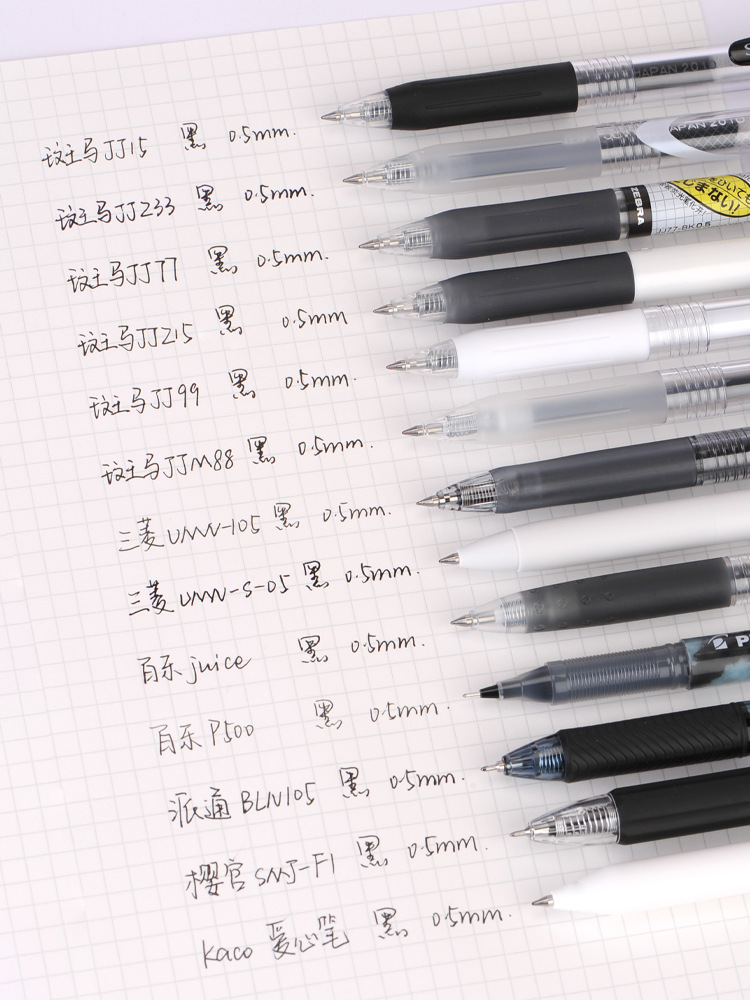 斑马JJ15 黑 0.5mm.
斑马JJZ33 黑 0.5mm.
斑马JJ77 黑 0.5mm.
斑马JJZ15 黑 0.5mm
斑马JJ99 黑 0.5mm.
斑马JJM88 黑 0.5mm.
三菱UMN-105 黑 0.5mm.
三菱UMN-S-05 黑 0.5mm.
百乐juice 黑 0.5mm.
百乐P500 黑 0.5mm.
派通BLN105 黑 0.5mm.
樱官SNJ-F1 黑 0.5mm.
Kaco 爱心笔 黑 0.5mm.
JAPAN 2016
JAPAN 2016
ZEBRA
じまない!
JJ77-BK 0.5